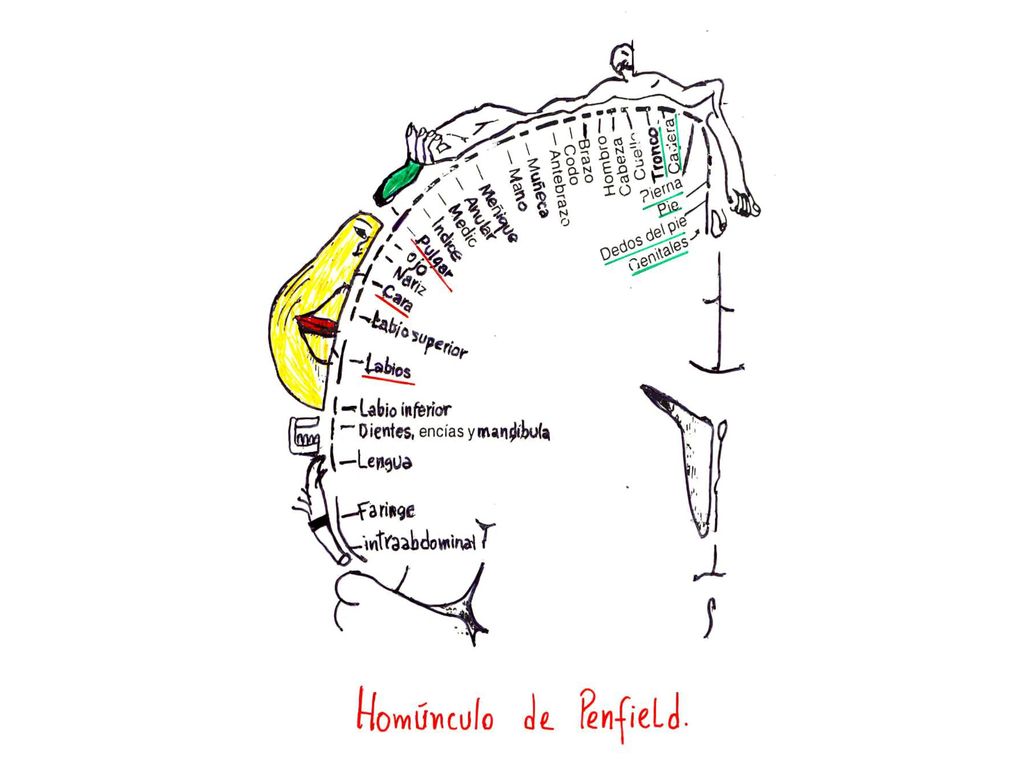 Genitales
Dedos del pie
Pie
Pierna
Cadera
Tronco
Cuello
Cabeza
Hombro
Brazo
Codo
Antebrazo
Muñeca
Mano
Meñique
Anular
Medio
Índice
Pulgar
ojo
Nariz
Cara
Labio superior
Labios
Labio inferior
Dientes, encías y mandíbula
Lengua
Faringe
intraabdominal
Homúnculo de Penfield.